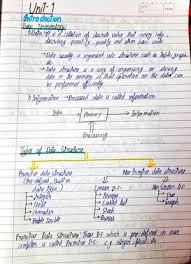 Unit-1
Introduction
Basic Terminology
1) Data → is a collection of discrete value that convey info
describing quantity, quality and other basic units
→ Data usually is organised into structure such as table, graph
etc.
→ Data structure is a way of organising or storing
data in the memory so that operation on the data can
be performed efficiently
2) Information → Processed data is called information
Data → Memory → Information
Processing
Types of Data Structure
Primitive data structure Non-Primitive data structure
(Pre-defined, built in
data type)
Linear D.S. Non Linear D.S.
→ Integer → Array → Tree
→ Float → Linked list → Graph
→ Character → Stack
→ Double → Queue
Primitive Data Structure: Those D.S. which is pre-defined in our
compiler is called Primitive D.S. e.g. integer, float, etc.